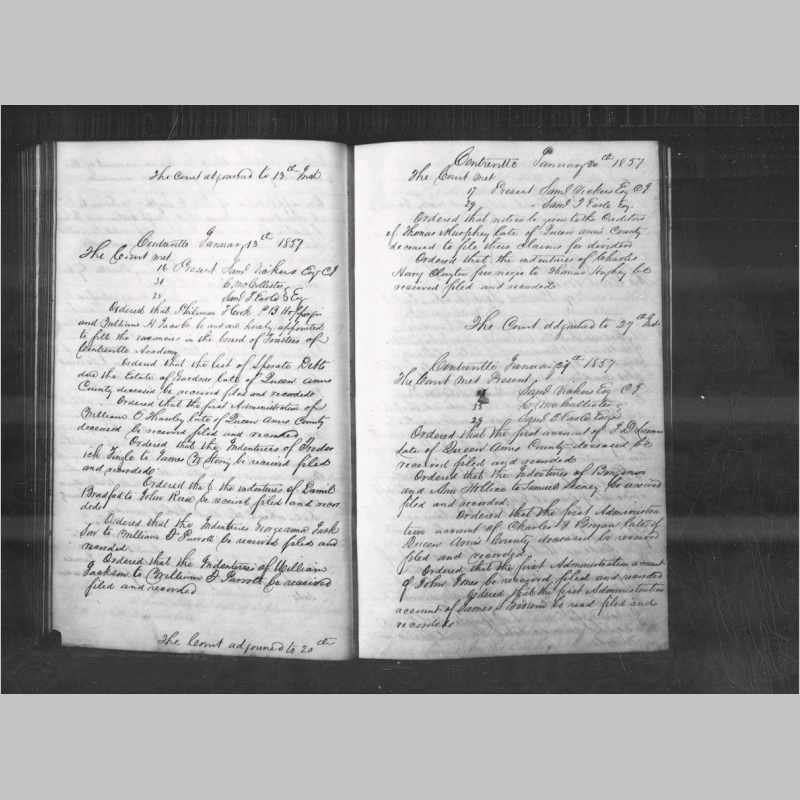 The Court adjourned to 13th Inst
Centreville January 13th 1857
The Court met
16 Present Saml Vickers Esq CJ
31 Wm McCollister
28 Saml T Earle Esq
Ordered that Philemon F Cook P. B. Hopper
and William H be and are hereby appointed
to fill the vacancies in the board of Trustees of
Centreville Academy
Ordered that the list of Sperate Debts
due the Estate of Gardner late of Queen Anns
County deceased be received filed and recorded
Ordered that the first Administration of
William C late of Queen Anns County
deceased be received filed and recorded
Ordered that the Indentures of Freder
ick Tingle to James W be received filed
and recorded
Ordered the the indentures of Daniel
to John Reed be received filed and recor
ded
Ordered that the Indentures Georgeanna Jack
son to William F Parrott be received filed and
recorded
Ordered that the Indentures of William
Jackson to William F Parrott be received
filed and recorded
The Court adjourned to 20th
Centreville January 20th 1857
The Court met
17 Present Saml Vickers Esq CJ
29 " Saml T Earle Esq
Ordered that notice be given to the Creditors
of Thomas Murphey late of Queen Anns County
deceased to file their Claims for dividend
Ordered that the indentures of Charles
Henry Clayton free negro to Thomas Hughey be
received filed and recorded
The Court adjourned to 27th Inst
Centreville January 27th 1857
The Court met Present
Saml Vickers Esq CJ
33 Wm McCollister
29 Saml T Earle Esqs
Ordered that the first account of
late of Queen Anns County deceased be
received filed and recorded
Ordered that the Indentures of Benjamin
and Ann to Samuel be received
filed and recorded
Ordered that the first Administra
tion account of Charles Bryan late of
Queen Anns County deceased be received
filed and recorded
Ordered that the first Administration account
of John Jones be received filed and recorded
Ordered that the first Administration
account of James be read filed and
recorded